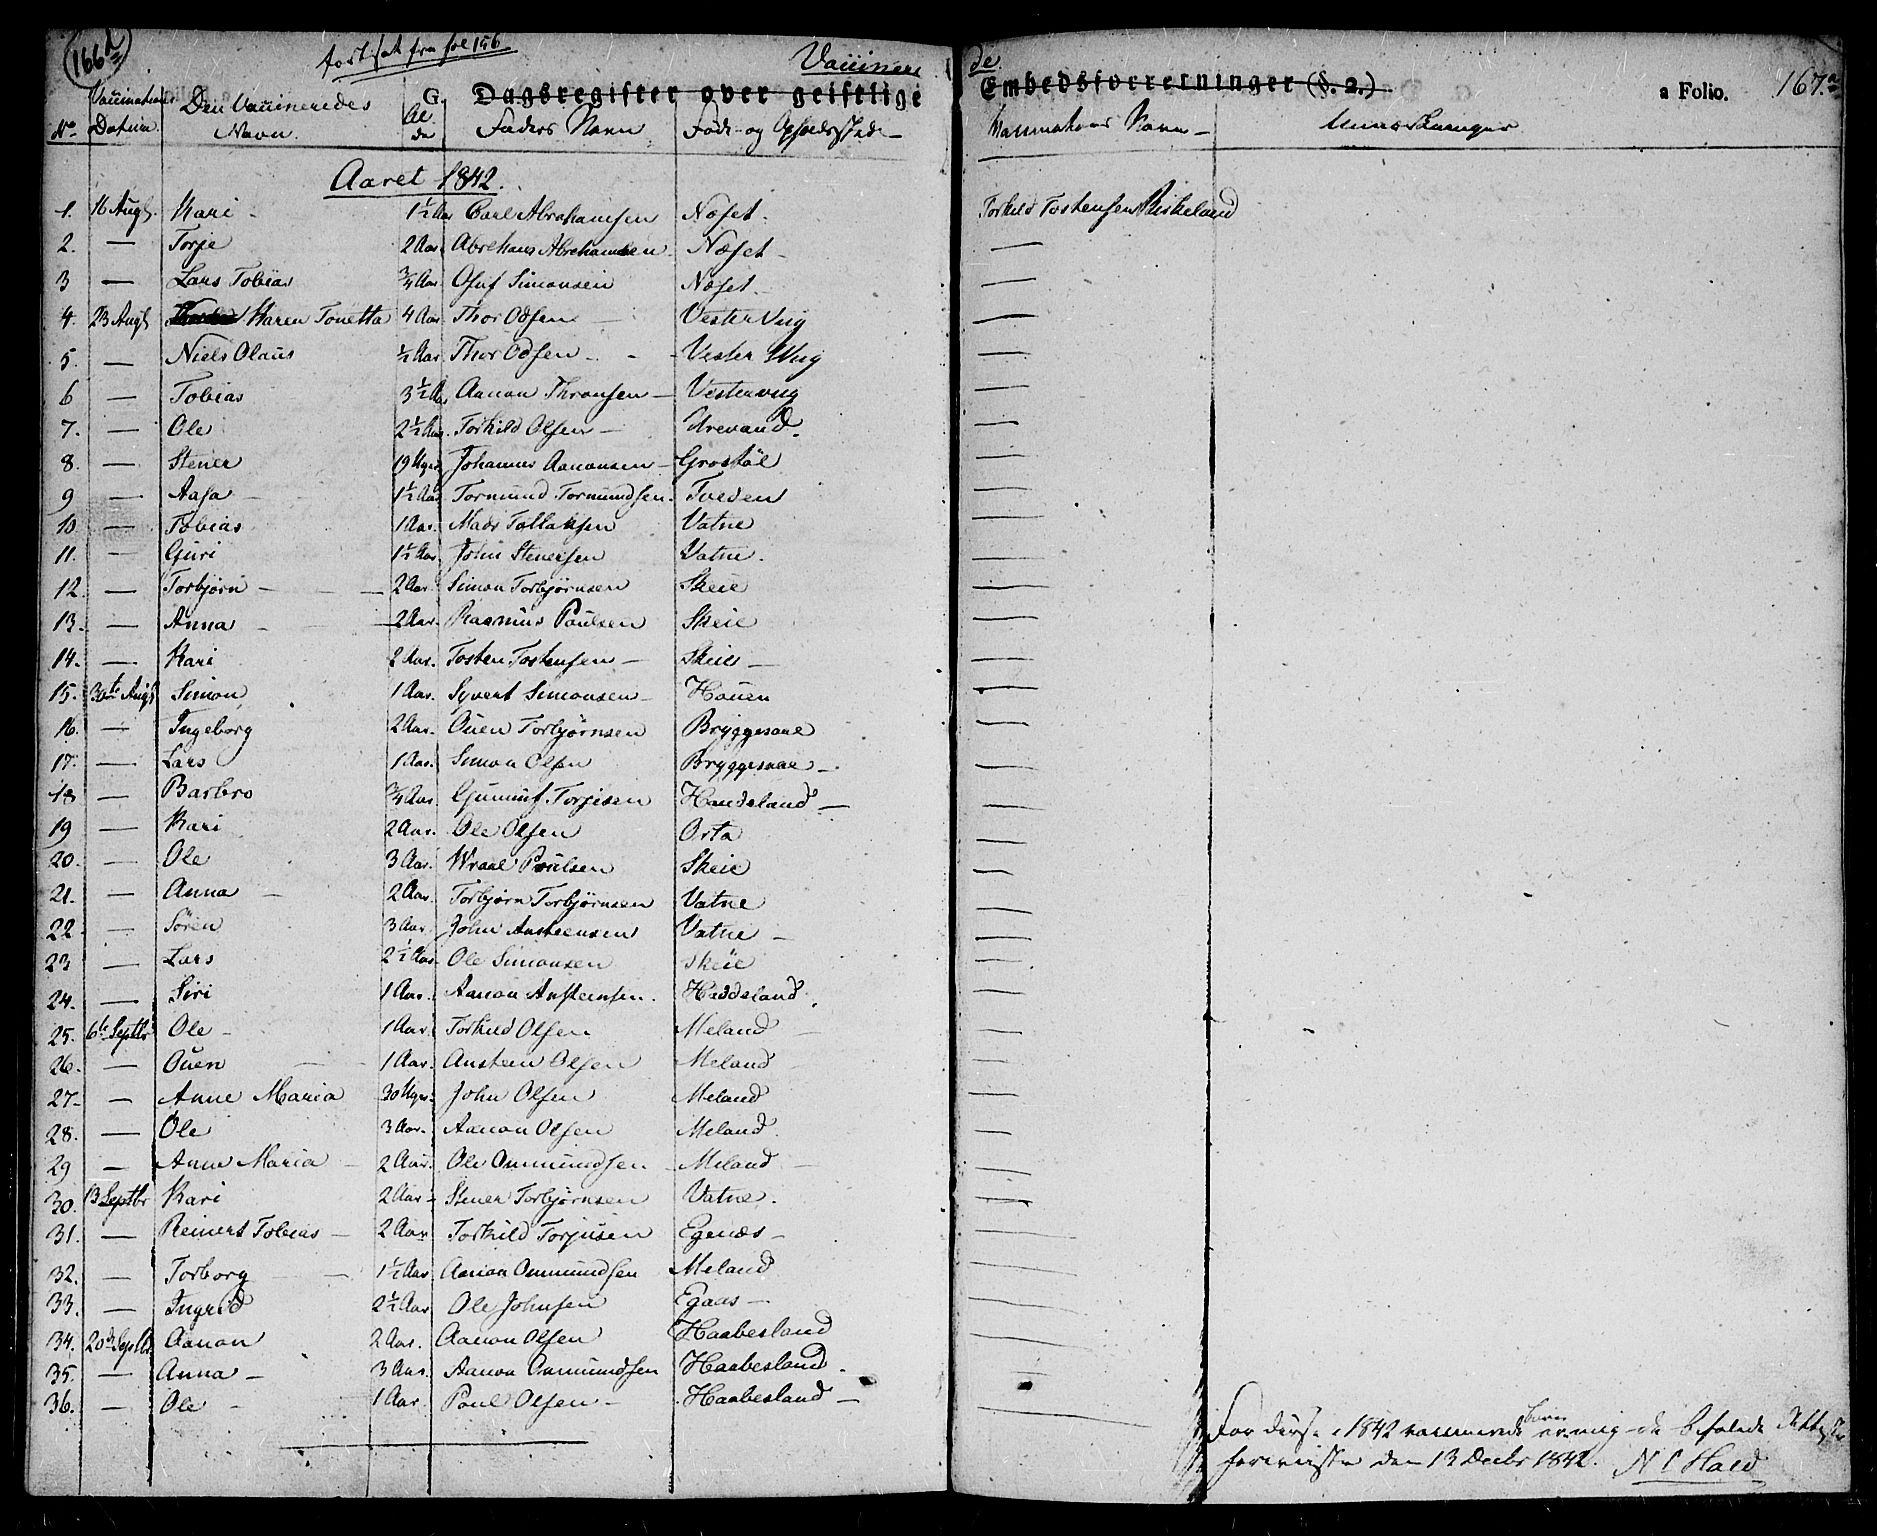 166 b
fortsat fra fol 156
Vaccinerede
Dagsregister over geistlige Embedsforretninger (§. 2.)
a Folio. 167.a
No Vaccinations Datum. Den Vaccineredes Navn. Alder Faders Navn Føde- og Opholdssted Vaccinateurs Navn Anmærkninger
Aaret 1842.
1. 16 Augst. Kari 1½ Aar Carl Abrahamsen Næset. Torkild Tostensen Birkeland
2. — Torje 2 Aar. Abraham Abrahamsen Næset —
3 — Lars Tobias ¾ Aar Oluf Simonsen Næset. —
4. 23 Augst Karen Tonetta 4 Aar. Thor Odsen Vester Vng —
5. — Niels Olaus ½ Aar. Thor Odsen Vester —
6 — Tobias 3½ Aar Aanon Thronsen Vester —
7. — Ole 2½ Aar. Torkild Olsen Urevand. —
8. — Stener 19 Uger Johannes Aanonsen Grostøl —
9 — Aasa 1½ Aar Tormund Tormundsen. Tveden —
10 — Tobias 1 Aar. Mads Tollaksen Vatne —
11. — Guri 1½ Aar. John Stenersen Vatne. —
12. — Torbjørn 2 Aar. Simon Torbjørnsen Skeie —
13. — Anna 2 Aar. Rasmus Poulsen Skeie —
14. — Kari 2 Aar. Tosten Tostensen Skeie —
15. 30te Augst Simon 1 Aar. Syvert Simonsen Houen —
16. — Ingeborg 2 Aar. Ouen Torbjørnsen Bryggesaae —
17. — Lars 1 Aar. Simon Olsen Bryggesaae —
18 — Barbro ¾ Aar Gunnuf Torjesen Haudeland —
19 — Kari 2 Aar. Ole Olsen Orta —
20. — Ole 3 Aar. Wraal Poulsen Skeie —
21. — Anna 2 Aar. Torbjørn Torbjørnsen Vatne —
22. — Søren 3 Aar. John Austeensen Vatne —
23 — Lars 2½ Aar. Ole Simonsen Skeie —
24. — Siri 1 Aar. Aanon Austeensen. Heddeland. —
25. 6te Septbr Ole 1 Aar. Torkild Olsen Meland —
26. — Ouen 1 Aar. Austeen Olsen Meland —
27. — Anne Maria 30 Uger. John Olsen Meland —
28. — Ole 3 Aar. Aanon Olsen Meland. —
29 — Anne Maria 2 Aar. Ole Onmundsen Meland —
30. 13 Septbr Kari 2 Aar Stener Torbjørnsen Vatne. —
31. — Reinert Tobias 2 Aar Torkild Torjusen Egenæs —
32. — Torborg 1½ Aar. Aanon Onmundsen Meland —
33. — Ingrid 2½ Aar Ole Johnsen Egaas —
34. 20de Septbr. Aanon 2 Aar. Aanon Olsen Haabesland —
35. — Anna 3 Aar. Aanon Onmundsen Haabesland. —
36. — Ole 1 Aar. Poul Olsen Haabesland —
For disse i 1842 vaccinerede Børn er mig de befalede Attester
foreviiste den 13 Decbr 1842. N C Hald